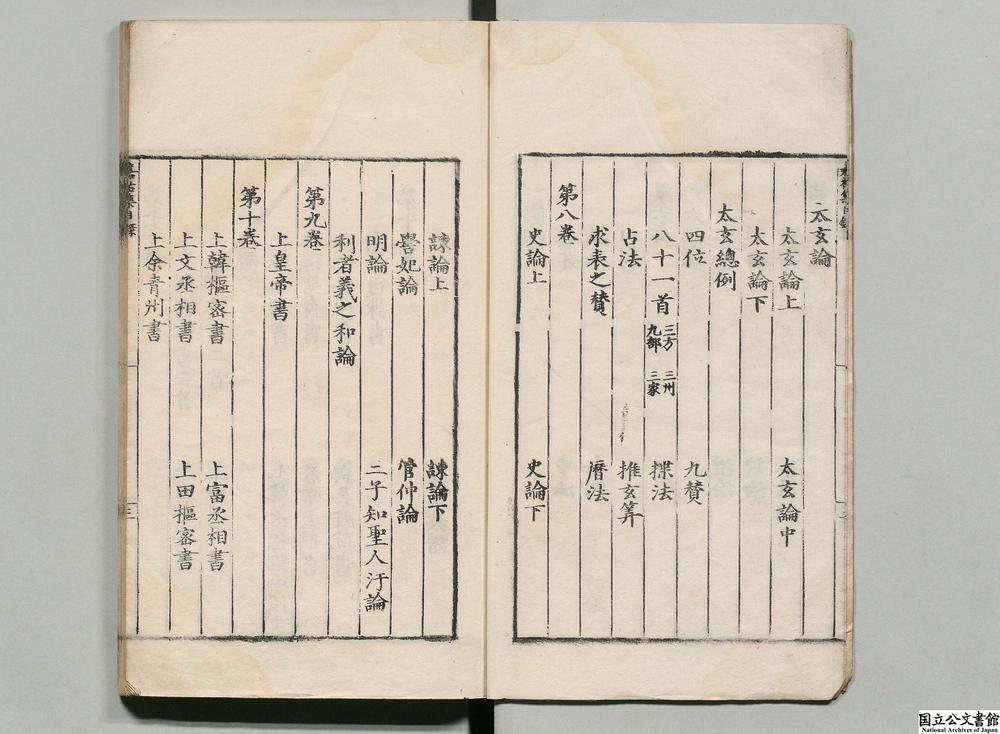 太玄論
太玄論上 太玄論中
太玄論下
太玄總例
四位 九贊
八十一首 三方 三州 九部 三家 揲法
占法 推玄筭
求表之贊 曆法
第八卷
史論上 史論下
諫論上 諫論下
嚳妃論 管仲論
明論 三子知聖人汙論
利者義之和論
第九卷
上皇帝書
第十卷
上韓樞密書 上富丞相書
上文丞相書 上田樞密書
上余青州書
国立公文書館
National Archives of Japan